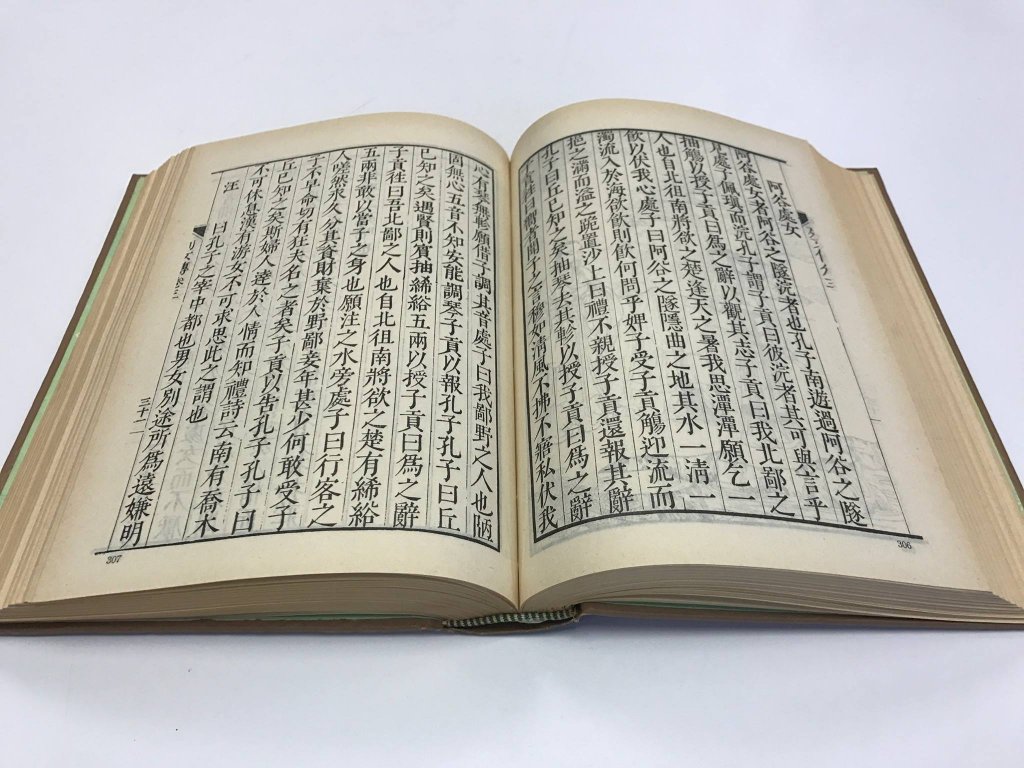 阿谷處女
阿谷處女者阿谷之隧浣者也孔子南遊過阿谷之隧
見處子佩瑱而浣孔子謂子貢曰彼浣者其可與言乎
抽觴以授子貢曰爲之辭以觀其志子貢曰我北鄙之
人也自北徂南將欲之楚逢天之暑我思潭潭願乞一
飲以伏我心處子曰阿谷之隧隱曲之地其水一清一
濁流入於海欲飲則飲何問乎婢子受子貢觴迎流而
挹之滿而溢之跪置沙上曰禮不親授子貢還報其辭
孔子曰丘已知之矣抽琴去其軫以授子貢曰爲之辭
子貢往曰嚮者聞子之言穆如清風不拂不寤私伏我
306
心有琴無軫願借子調其音處子曰我鄙野之人也陋
固無心五音不知安能調琴子貢以報孔子孔子曰丘
已知之矣遇賢則賓抽絺綌五兩以授子貢曰爲之辭
子貢往曰吾北鄙之人也自北徂南將欲之楚有絺綌
五兩非敢以當子之身也願注之水旁處子曰行客之
人嗟然永久分其資財棄於野鄙妾年甚少何敢受子
子不早命切有狂夫名之者矣子貢以告孔子孔子曰
丘已知之矣斯婦人達於人情而知禮詩云南有喬木
不可休息漢有游女不可求思此之謂也
汪 曰孔子之宰中都也男女別途所爲遠嫌明
列女傳卷 三十一
307